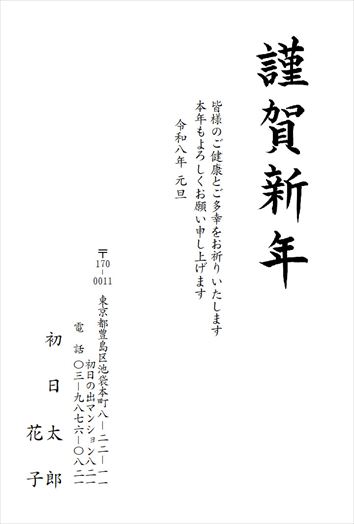 謹賀新年
皆様のご健康とご多幸をお祈りいたします
本年もよろしくお願い申し上げます
令和八年 元旦
〒170-0011
東京都豊島区池袋本町八-二二-一一
初日の出マンション八二一
電話 〇三-九八七六-〇八二一
初日 太郎
花子